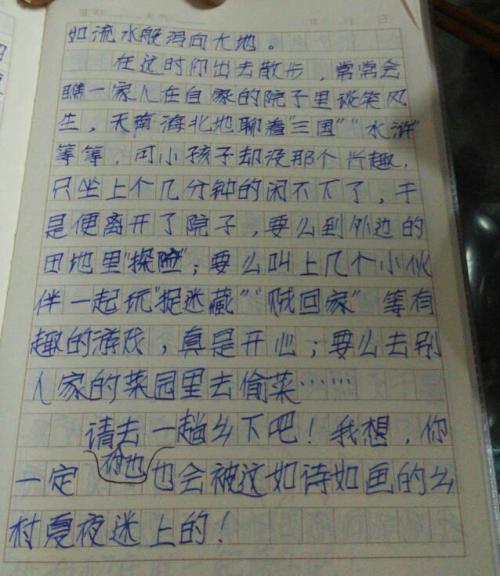 如流水般泻向大地。
在这时你出去散步，常常会
瞧一家人在自家的院子里谈笑风
生，天南海北地聊着"三国""水浒"
等等，可小孩子却没那个兴趣，
只坐上个几分钟的闲不下了，于
是便离开了院子，要么到外边的
田地里"探险"；要么叫上几个小伙
伴一起玩"捉迷藏""贼回家"等有
趣的游戏，真是开心；要么去别
人家的菜园里去偷菜……
请去一趟乡下吧！我想，你
一定也会被这如诗如画的乡
村夏夜迷上的！